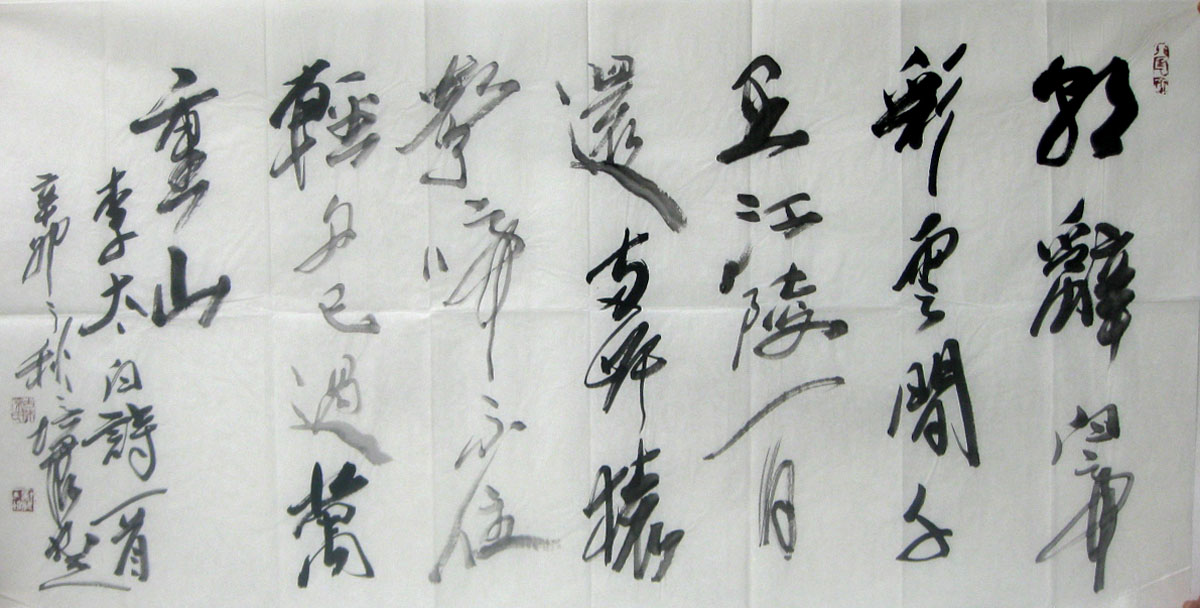 朝辭白帝
彩雲間千
里江陵一日
還兩岸猿
聲啼不住
輕舟已過萬
重山
李太白詩一首
辛卯之秋